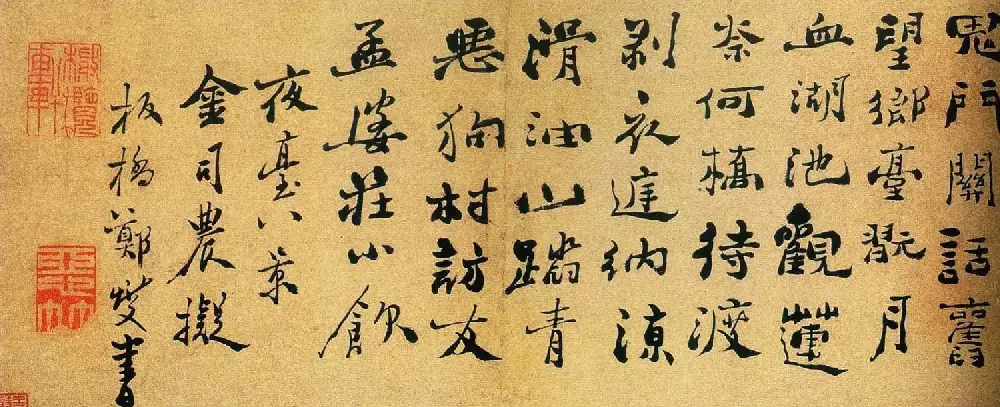 鬼門關話舊
望鄉臺翫月
血湖池觀蓮
柰何橋待渡
剥衣庭納涼
滑油山踏青
惡狗村訪友
孟婆莊小飲
夜臺八景
金司農擬
板橋鄭燮書